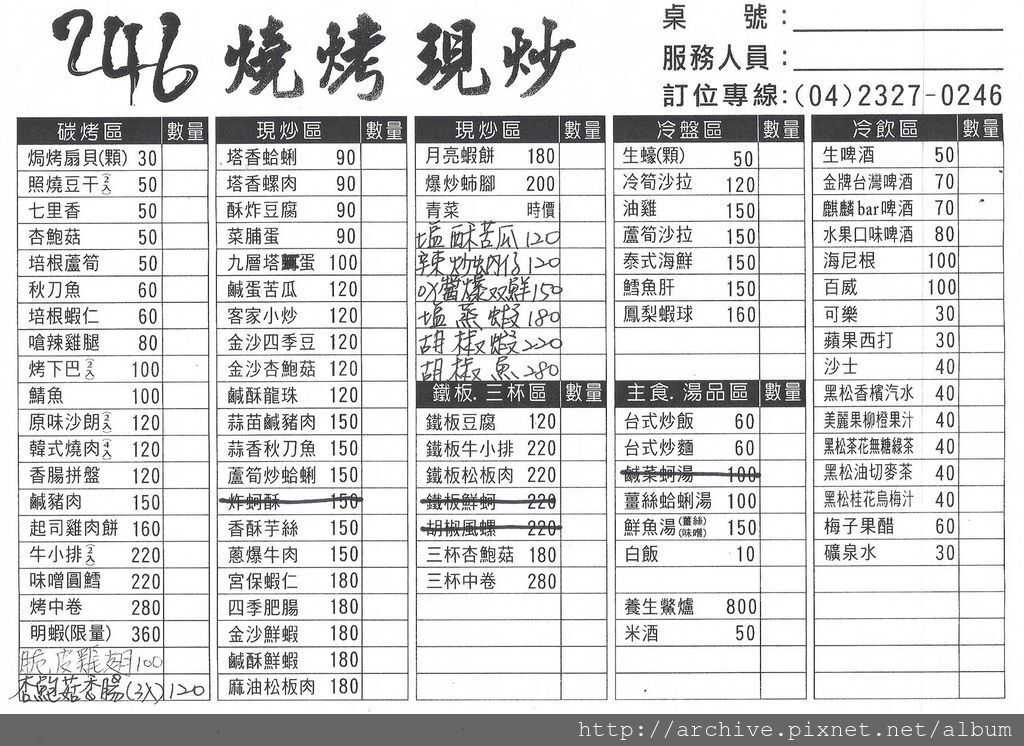 246 燒烤現炒
桌 號：
服務人員：
訂位專線:(04)2327-0246
碳烤區 數量
焗烤扇貝(顆) 30
照燒豆干(2入) 50
七里香 50
杏鮑菇 50
培根蘆筍 50
秋刀魚 60
培根蝦仁 60
嗆辣雞腿 80
烤下巴(2入) 100
鯖魚 100
原味沙朗(2入) 120
韓式燒肉(4入) 120
香腸拼盤 120
鹹豬肉 150
起司雞肉餅 160
牛小排(2入) 220
味噌圓鱈 220
烤中卷 280
明蝦(限量) 360
脆皮雞翅 100
杏鮑菇香腸(3入) 120
現炒區 數量
塔香蛤蜊 90
塔香螺肉 90
酥炸豆腐 90
菜脯蛋 90
九層塔蛋 100
鹹蛋苦瓜 120
客家小炒 120
金沙四季豆 120
金沙杏鮑菇 120
鹹酥龍珠 120
蒜苗鹹豬肉 150
蒜香秋刀魚 150
蘆筍炒蛤蜊 150
炸蚵酥 150
香酥芋絲 150
蔥爆牛肉 150
宮保蝦仁 180
四季肥腸 180
金沙鮮蝦 180
鹹酥鮮蝦 180
麻油松板肉 180
現炒區 數量
月亮蝦餅 180
爆炒蛳腳 200
青菜 時價
塩酥苦瓜 120
辣炒蚋仔 120
XO醬爆双鮮 150
塩蒸蝦 180
胡椒蝦 220
胡椒魚 280
鐵板.三杯區 數量
鐵板豆腐 120
鐵板牛小排 220
鐵板松板肉 220
鐵板鮮蚵 220
胡椒風螺 220
三杯杏鮑菇 180
三杯中卷 280
冷盤區 數量
生蠔(顆) 50
冷筍沙拉 120
油雞 150
蘆筍沙拉 150
泰式海鮮 150
鱈魚肝 150
鳳梨蝦球 160
主食.湯品區 數量
台式炒飯 60
台式炒麵 60
鹹菜蚵湯 100
薑絲蛤蜊湯 100
鮮魚湯(薑絲 味噌) 150
白飯 10
養生鱉爐 800
米酒 50
冷飲區 數量
生啤酒 50
金牌台灣啤酒 70
麒麟bar啤酒 70
水果口味啤酒 80
海尼根 100
百威 100
可樂 30
蘋果西打 30
沙士 40
黑松香檳汽水 40
美麗果柳橙果汁 40
黑松茶花無糖綠茶 40
黑松油切麥茶 40
黑松桂花烏梅汁 40
梅子果醋 60
礦泉水 30
http://archive.pixnet.net/album